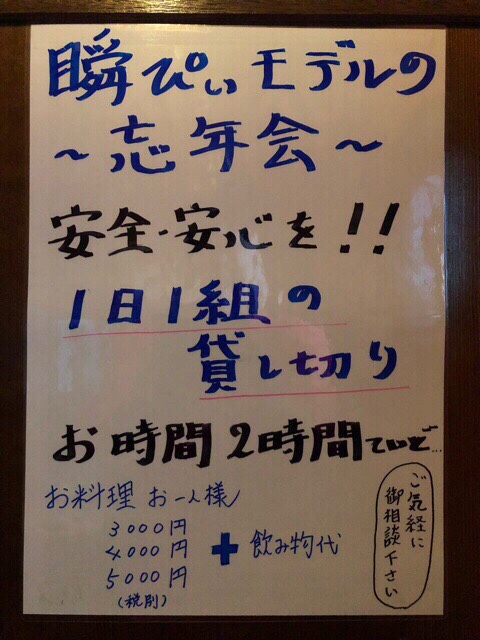 瞬ぴぃモデルの
～忘年会～
安全・安心を!!
1日1組の
貸し切り
お時間2時間ていど…
お料理 お一人様
3000円
4000円
5000円
(税別)
＋飲み物代
ご気軽に
御相談下さい